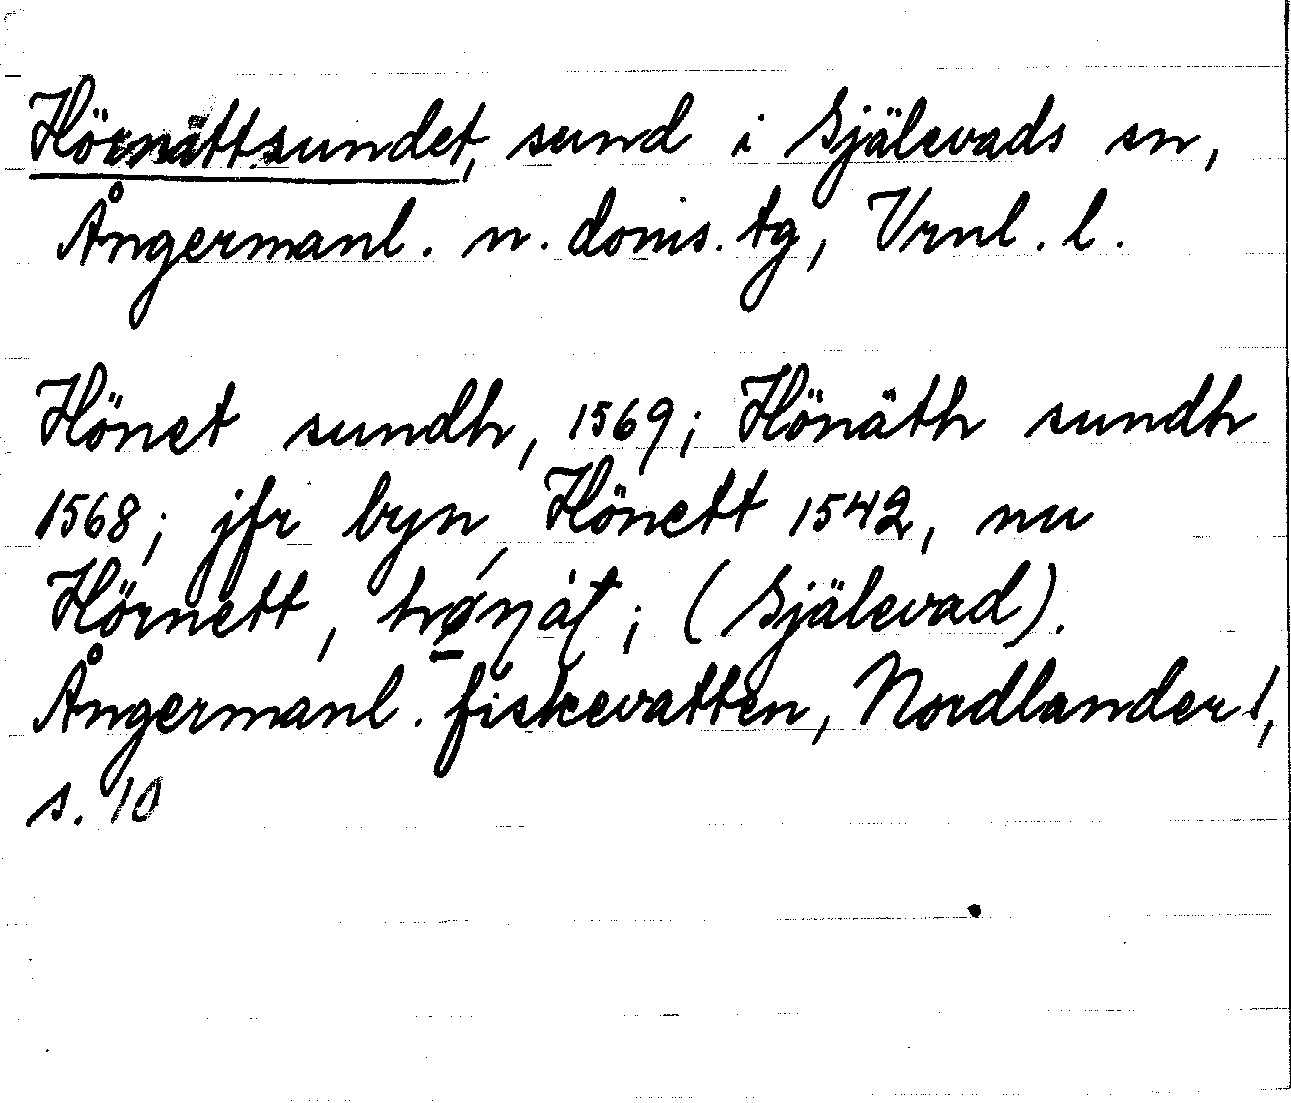 Hörnättsundet, sund i Själevads sn,
Ångermanl. n. doms. tg, Vrnl. l.
Hönet sundh, 1569; Hönäth sundh
1568; jfr byn Hönett 1542, nu
Hörnett, ; (Själevad).
Ångermanl. fiskevatten, Nordlander,
s. 10